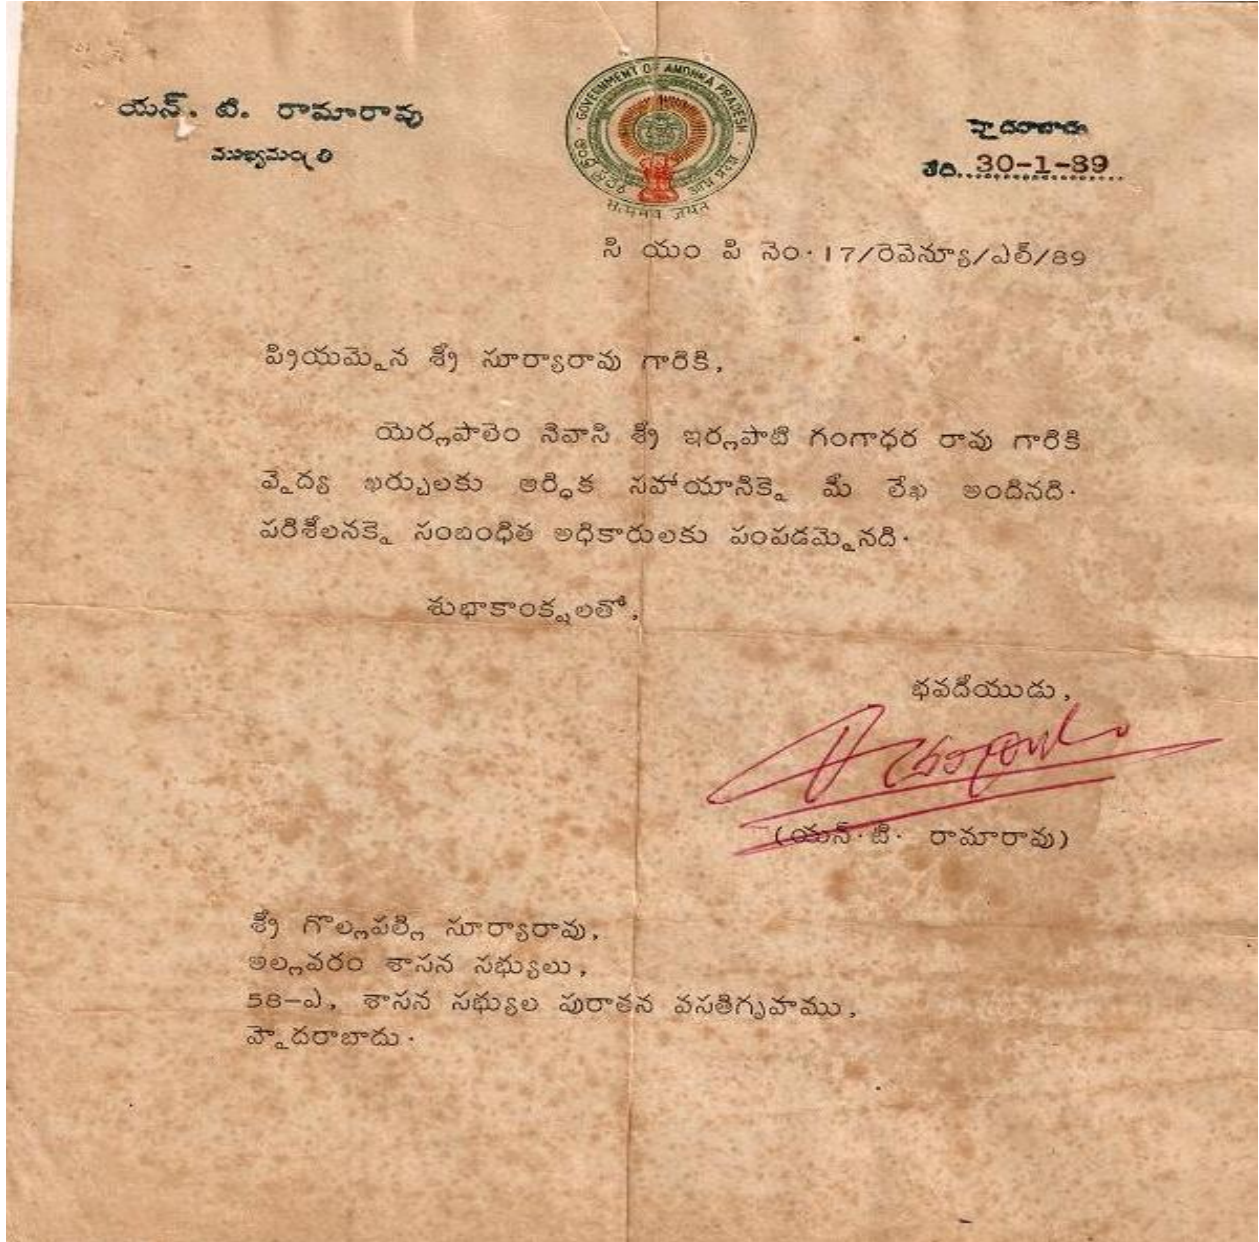 యన్. టి. రామారావు
ముఖ్యమంత్రి
GOVERNMENT OF ANDHRA PRADESH
सत्यमेव जयते
హైదరాబాదు
తేది. 30-1-89
సి యం పి నెం. 17/రెవెన్యూ/ఎల్/89
ప్రియమైన శ్రీ సూర్యారావు గారికి,
యెర్లపాలెం నివాసి శ్రీ ఇర్లపాటి గంగాధర రావు గారికి
వైద్య ఖర్చులకు ఆర్ధిక సహాయానికై మీ లేఖ అందినది.
పరిశీలనకై సంబంధిత అధికారులకు పంపడమైనది.
శుభాకాంక్షలతో,
భవదీయుడు,
(యన్.టి. రామారావు)
శ్రీ గొల్లపల్లి సూర్యారావు,
అల్లవరం శాసన సభ్యులు,
58-ఎ, శాసన సభ్యుల పురాతన వసతిగృహము,
హైదరాబాదు.